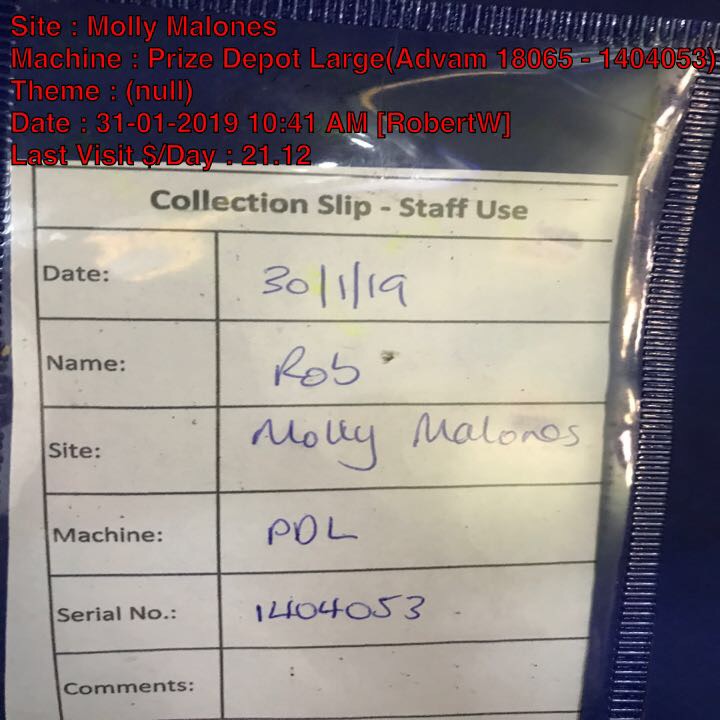 Site : Molly Malones
Machine : Prize Depot Large(Advam 18065 - 1404053)
Theme : (null)
Date : 31-01-2019 10:41 AM [RobertW]
Last Visit $/Day : 21.12
Collection Slip - Staff Use
Date: 30/1/19
Name: Rob
Site: Molly Malones
Machine: PDL
Serial No.: 1404053
Comments: